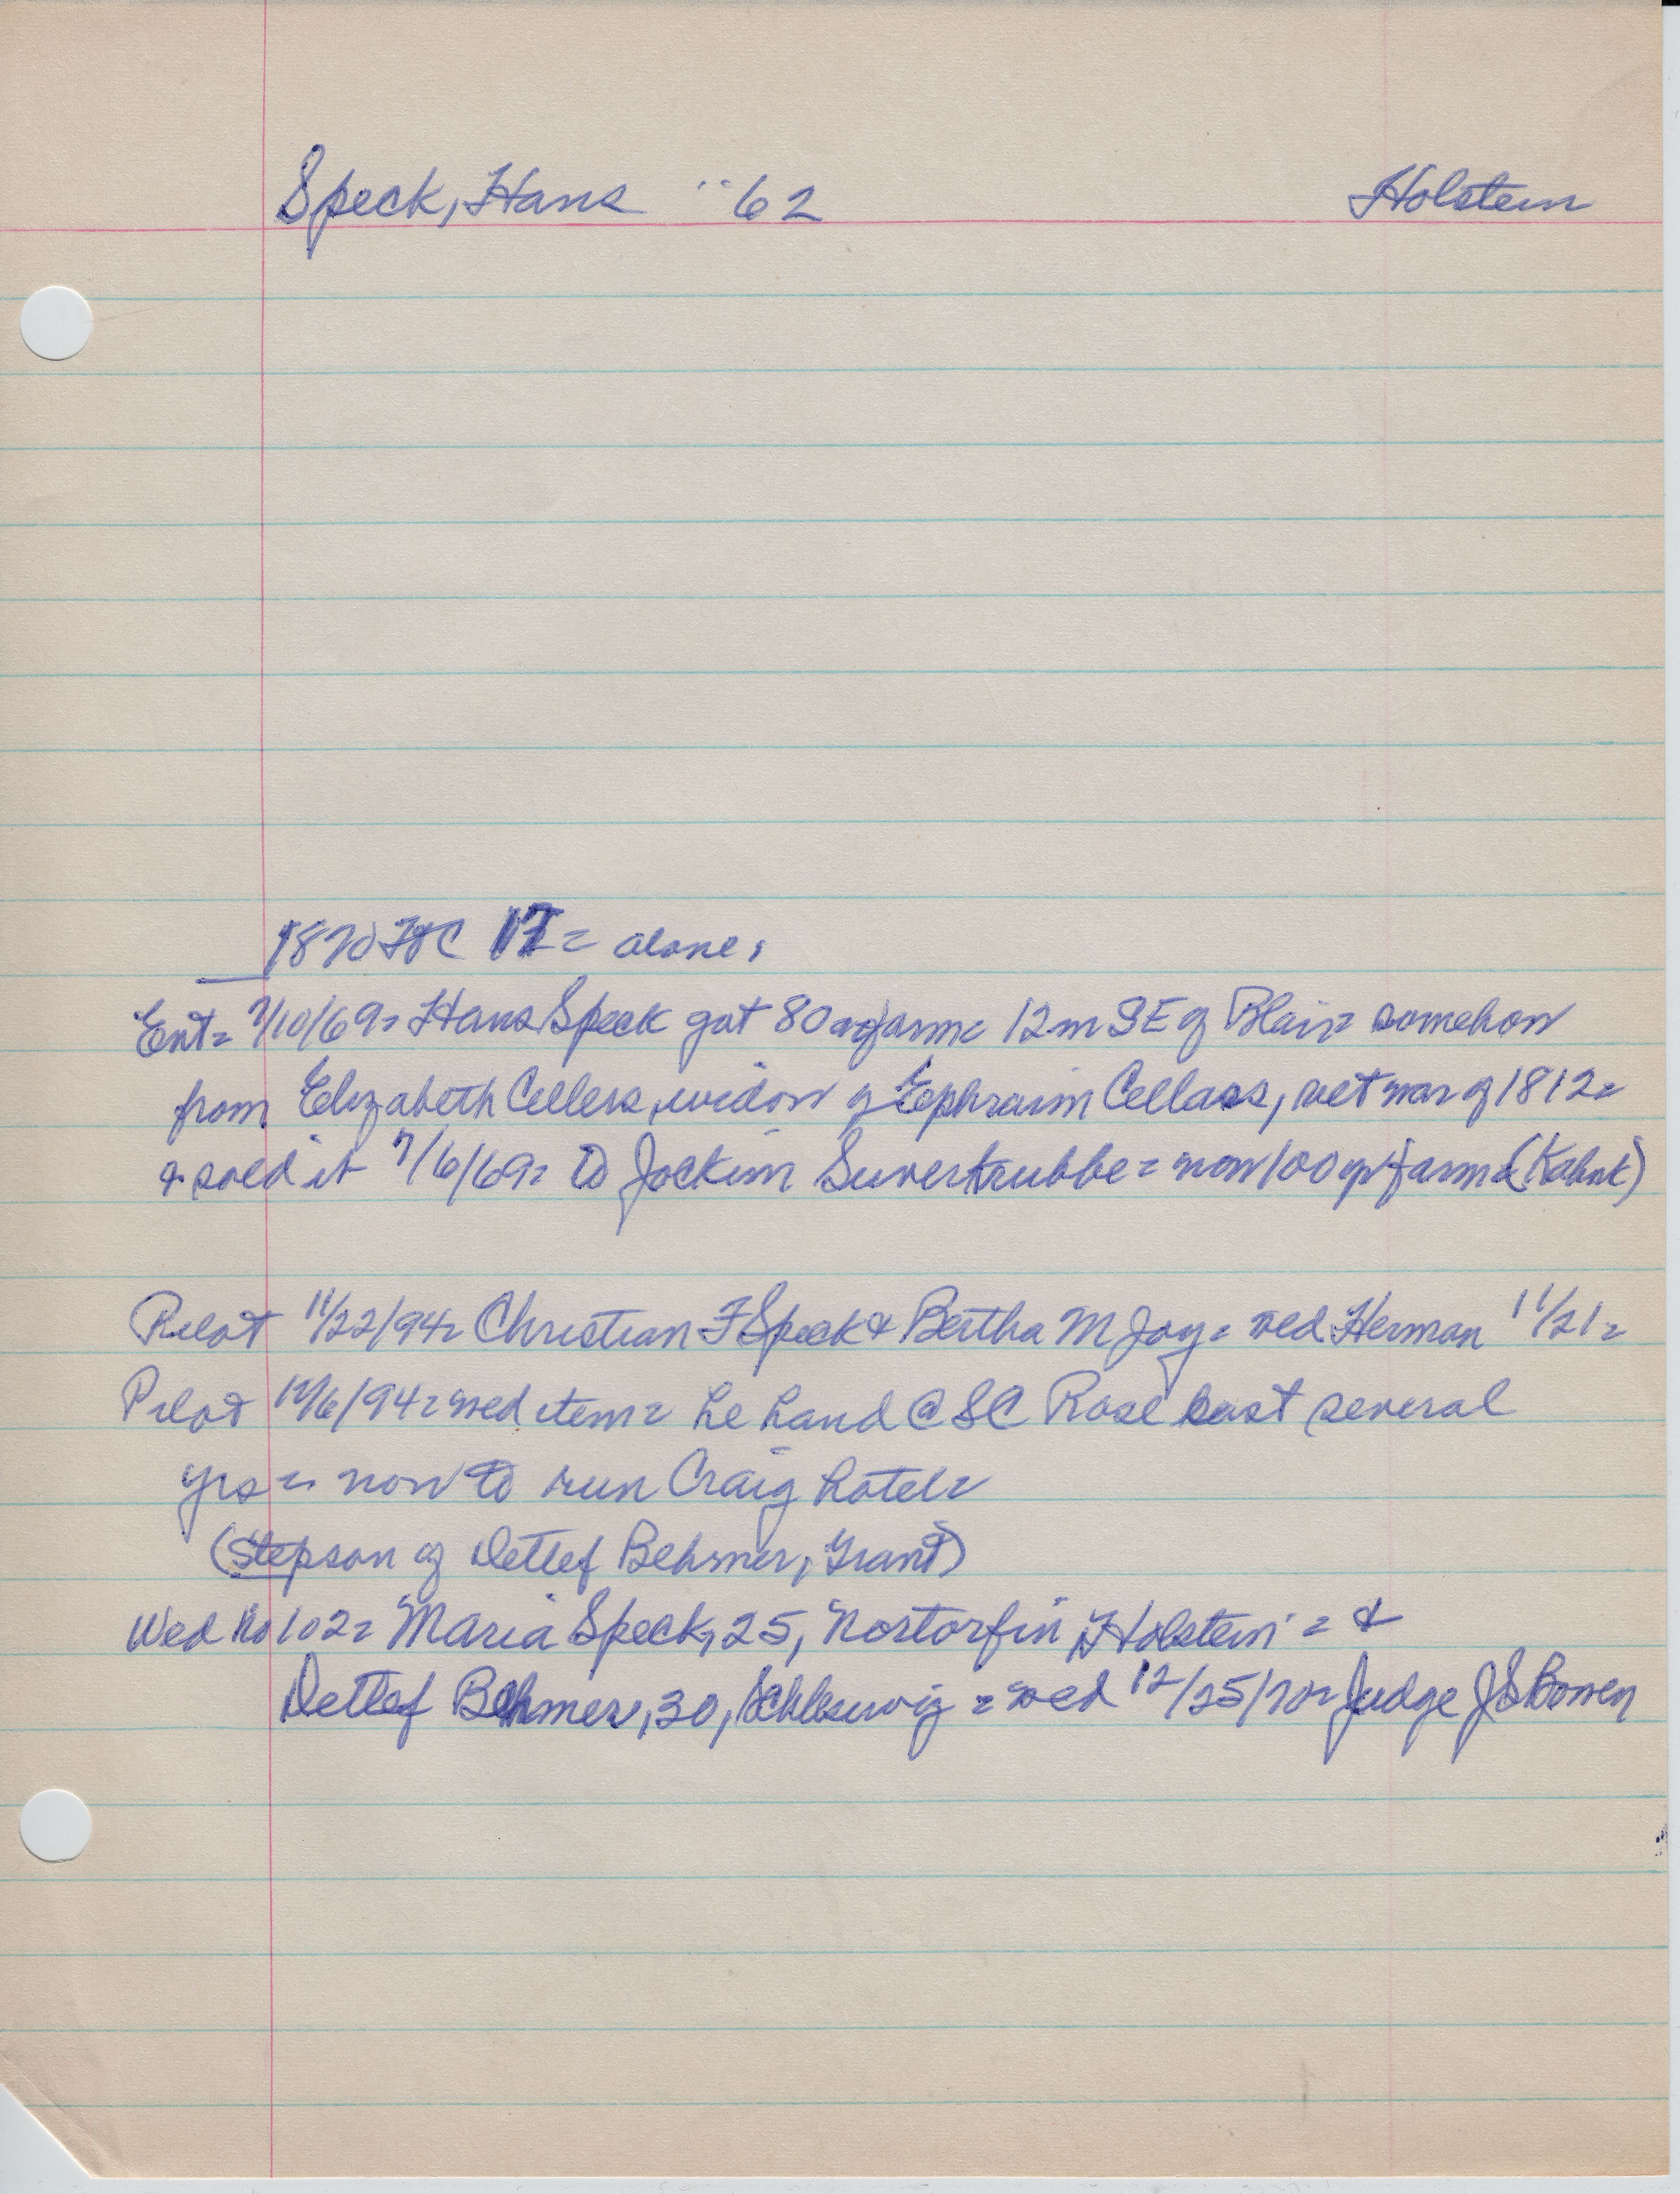 Speck, Hans "62 Holstein
1870 FtC 17= alone,
Ent= 7/10/69= Hans Speck got 80 farm= 12m SE of Blair= somehow
from Elizabeth Cellers, widow of Ephraim Cellars, vet war of 1812=
& sold it 7/6/69= to Jockim Suvertrubbe= now 100 farm (Kahnk)
Pilot 11/22/94= Christian F Speck & Bertha M Joy= wed Herman 11/21=
Pilot 12/6/94= wed item= he hand @ SC Rose east several
yrs= now to run Craig hotel=
(stepson of Detlef Behmer, Grant)
Wed No 102= Maria Speck, 25, "Nortorf in Holstein"= &
Detlef Behmer, 30, Schleswig= wed 12/25/70= Judge J S Bowen